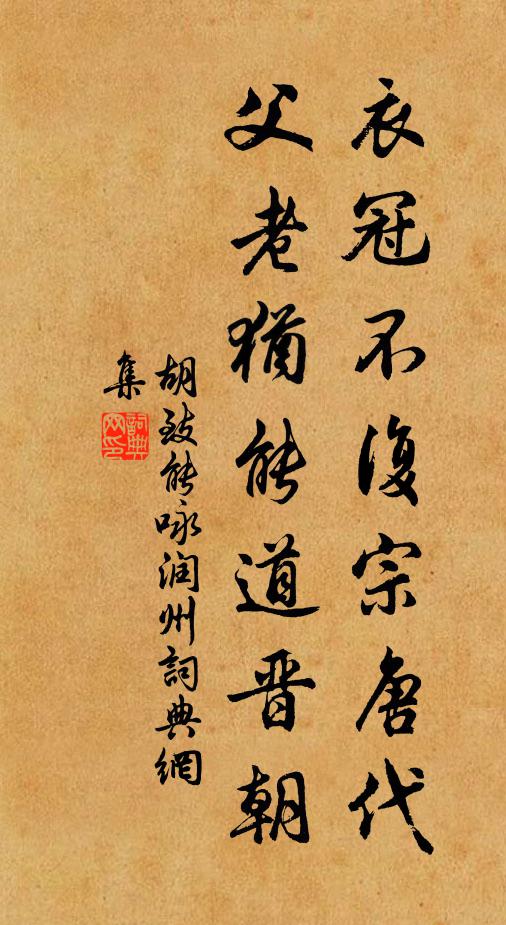 衣冠不復宗唐代
父老猶能道晋朝
胡致能咏润州詞典網
集
詞典
网印